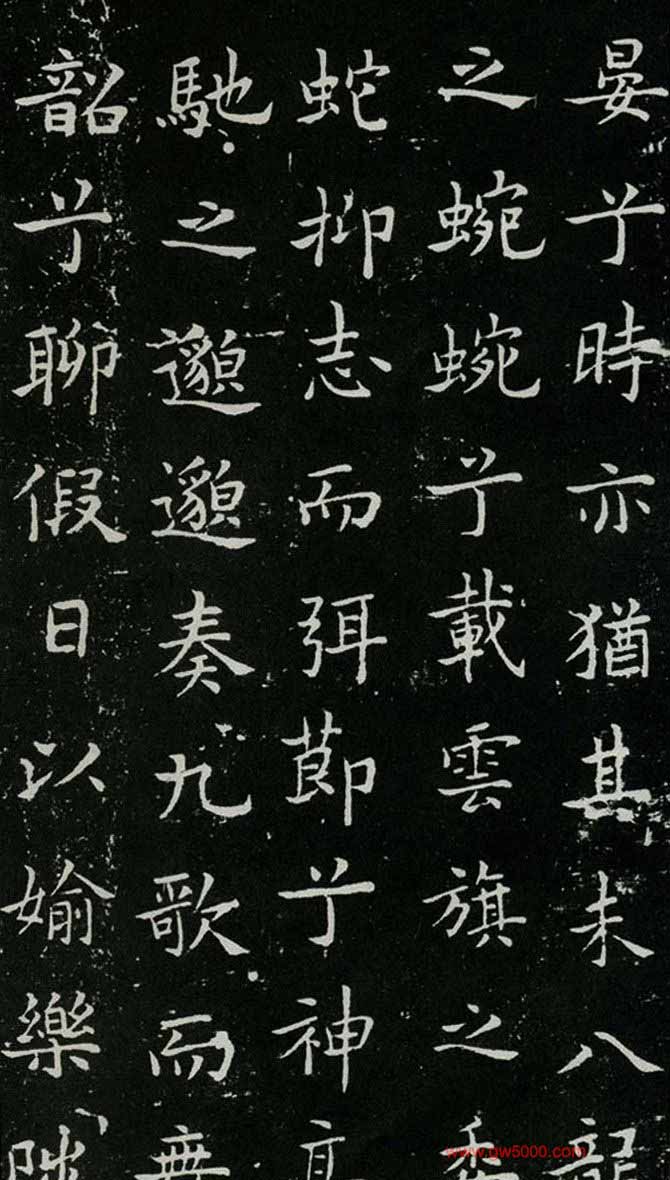 晏兮時亦猶其未八龍
之蜿蜿兮載雲旗之委
蛇抑志而弭節兮神高
馳之邈邈奏九歌而舞
韶兮聊假日以媮樂陟
www.gw5000.com